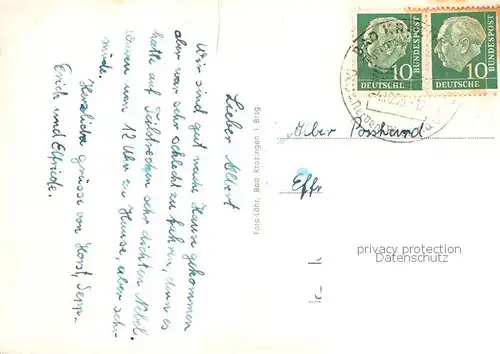 Lieber Albert
Wir sind gut nach Hause gekommen
aber war sehr schlecht zu fahren, denn es
hatte auf Teilstrecken sehr dichten Nebel.
Waren um 12 Uhr zu Hause, aber sehr
müde.
Herzliche Grüsse von Horst, Sepp.
Erich und Elfriede.
Foto-Löhr, Bad Krozingen i. Brsg.
10
DEUTSCHE
BUNDESPOST
10
DEUTSCHE
BUNDESPOST
BAD KR
Ober
privacy protection
Datenschutz